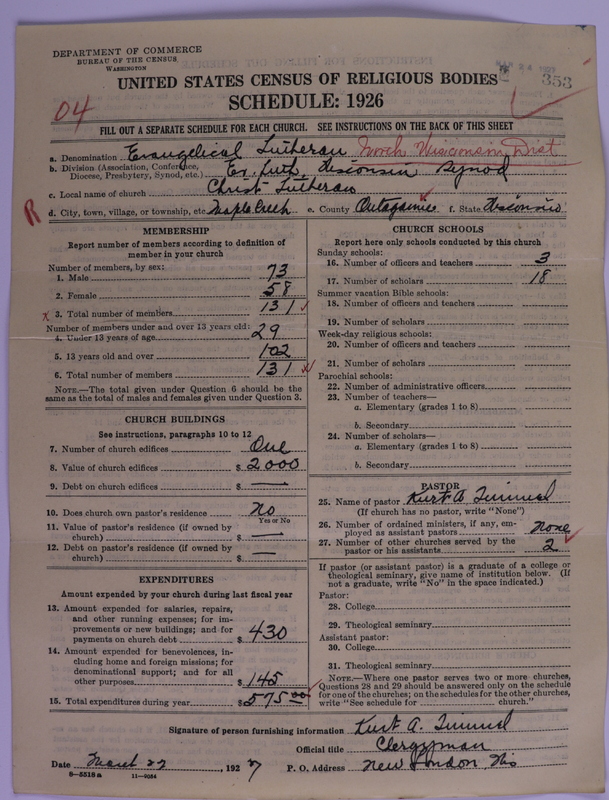 DEPARTMENT OF COMMERCE
BUREAU OF THE CENSUS
WASHINGTON
MAR 24 1927
353
UNITED STATES CENSUS OF RELIGIOUS BODIES
SCHEDULE: 1926
04
FILL OUT A SEPARATE SCHEDULE FOR EACH CHURCH. SEE INSTRUCTIONS ON THE BACK OF THIS SHEET
a. Denomination Evangelical Lutheran North Wisconsin Dist
b. Division (Association, Conference, Diocese, Presbytery, Synod, etc.) Ev. Luth. Wisconsin Synod
c. Local name of church Christ Lutheran
R d. City, town, village, or township, etc. Maple Creek e. County Outagamie f. State Wisconsin
MEMBERSHIP
Report number of members according to definition of
member in your church
Number of members, by sex:
1. Male 73
2. Female 58
x 3. Total number of members 131
Number of members under and over 13 years old:
4. Under 13 years of age 29
5. 13 years old and over 102
6. Total number of members 131
NOTE.—The total given under Question 6 should be the
same as the total of males and females given under Question 3.
CHURCH BUILDINGS
See instructions, paragraphs 10 to 12
7. Number of church edifices One
8. Value of church edifices $ 2000
9. Debt on church edifices $ —
10. Does church own pastor's residence No
Yes or No
11. Value of pastor's residence (if owned by
church) $ —
12. Debt on pastor's residence (if owned by
church) $ —
EXPENDITURES
Amount expended by your church during last fiscal year
13. Amount expended for salaries, repairs,
and other running expenses; for im-
provements or new buildings; and for
payments on church debt $ 430
14. Amount expended for benevolences, in-
cluding home and foreign missions; for
denominational support; and for all
other purposes $ 145
15. Total expenditures during year $ 575.00
CHURCH SCHOOLS
Report here only schools conducted by this church
Sunday schools:
16. Number of officers and teachers 3
17. Number of scholars 18
Summer vacation Bible schools:
18. Number of officers and teachers
19. Number of scholars
Week-day religious schools:
20. Number of officers and teachers
21. Number of scholars
Parochial schools:
22. Number of administrative officers
23. Number of teachers—
a. Elementary (grades 1 to 8)
b. Secondary
24. Number of scholars—
a. Elementary (grades 1 to 8)
b. Secondary
PASTOR
25. Name of pastor Kurt A. Timmel
(If church has no pastor, write "None")
26. Number of ordained ministers, if any, em-
ployed as assistant pastors None
27. Number of other churches served by the
pastor or his assistants 2
If pastor (or assistant pastor) is a graduate of a college or
theological seminary, give name of institution below. (If
not a graduate, write "No" in the space indicated.)
Pastor:
28. College
29. Theological seminary
Assistant pastor:
30. College
31. Theological seminary
NOTE.—Where one pastor serves two or more churches,
Questions 28 and 29 should be answered only on the schedule
for one of the churches; on the schedules for the other churches,
write "See schedule for church."
Signature of person furnishing information Kurt A. Timmel
Official title Clergyman
Date March 22, 1927 P. O. Address New London, Wis
8—5518 a 11—9034